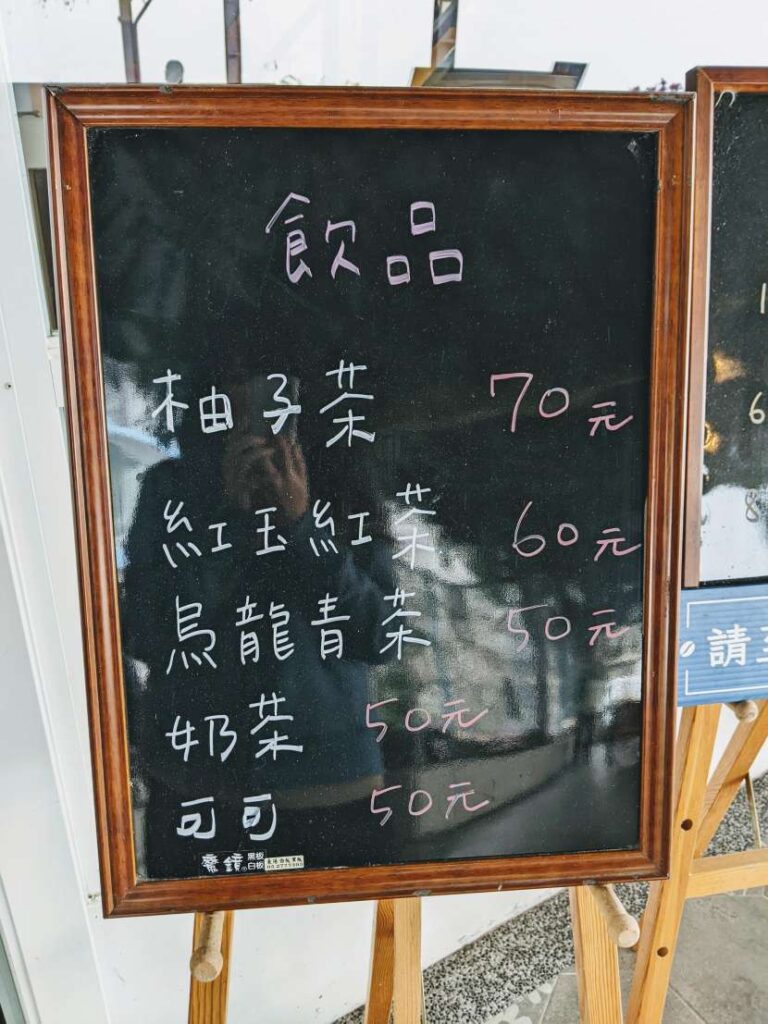 飲品
柚子茶 70元
紅玉紅茶 60元
烏龍青茶 50元
奶茶 50元
可可 50元
黑板
白板
1
6
8
請